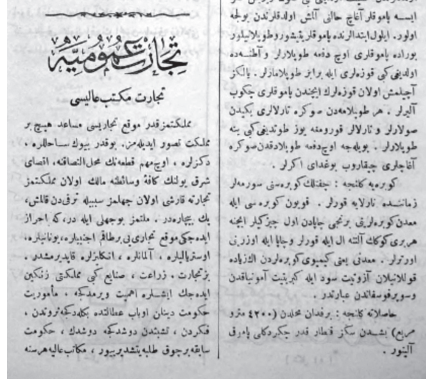 ایسه پاموقلر آغاج حالی آلمش اولدقلرندن بوله
اولور. ایلول ابتدالرنده پاموقلری پیشور وطوپلانیور
بوراده پاموقلری اوچ دفعه طوپلارلر و آطنه‌ده
اولدیغی کبی قوزه‌لری ایله برابر طوپلامازلر. یالکز
آچلمش اولان قوزه‌لرك ایچندن پاموقلری چکوب
آلیرلر، هر طوپلامه‌دن صوکره تارلالری یکیدن
صولارلر و تارلالر قورومغه یوز طوتدیغی کبی ینه
طوپلارلر. بویله‌جه اوچ‌دفعه طوپلادقدن صوکره
آغاجلری چیقاروب بوغدای اکرلر.
کوبره‌یه کلنجه: چفتلك کوبره‌سنی سورمه‌لر
زماننده تارلایه قورلر. قویون کوبره‌سی ایله
معدن کوبره‌لرینی برنجی چاپادن اول چیزکیلر ایچنه
هربری کوکك آلتنه ال ایله قورلر وچاپا ایله اوزرینی
اورترلر. معدنی یعنی کیمیوی کوبره‌لردن اك‌زیاده
قوللانیلان آزوتیت سود ایله کبریتیت آمونیاقدن
وسوپرفوسفاتدن عبارتدر.
حاصلاته کلنجه: برفدان محلدن (٤٢٠٠ مترو
مربع) بشدن سکز قنطار قدر چکردکلی پاموق
آلنور.
تجارت عمومیه
تجارت مکتب عالیسی
مملکتمز قدر موقع تجاریسی مساعد هیچ بر
مملکت تصور ایدیله‌مز. بوقدر بیوك ساحللره،
دکزلره، اوچ مهم قطعه‌نك محل التصاقنه، اقصای
شرق یولنك کافهٔ وسائطنه مالك اولان مملکتمز
تجارته قارشی اولان جهلمز سببیله ترقی‌دن قالمش،
پك بیچاره‌در. ملتمز بوجهلی ایله در، که احراز
ایده‌جکی موقع تجارتی بر طاقم اجنبیلره، یونانیلره،
اوستریالیلره، آلمانلره، انکلیزلره قاپدیرمشدر.
بز تجارت، زراعت، صنایع کبی مملکتی زنکین
ایده‌جك ایشلره اهمیت ویرمدکجه، مأموریت
حکومت دینلن ارباب عطالتده بکله‌دکجه ثروتدن،
فکردن، تشبثدن دوشدکجه دوشدك، حکومت
سابقه برچوق طلبه یتشدیریور، مکاتب عالیه هرسنه